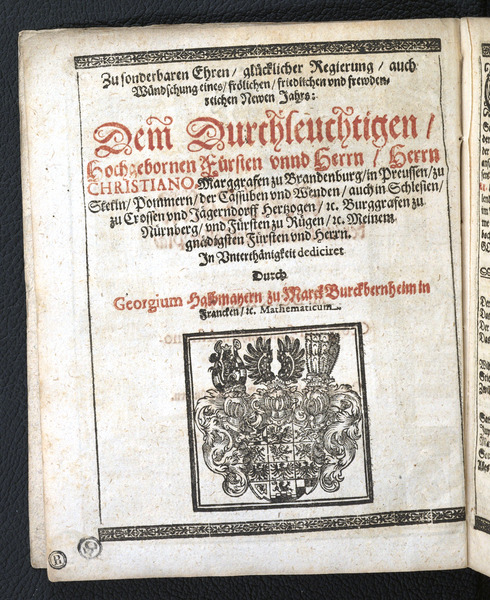 Zu sonderbaren Ehren / glücklicher Regierung / auch
Wündschung eines / frölichen / friedlichen und frewden-
reichen Newen Jahrs:
Dem Durchleuchtigen /
Hochgebornen Fürsten unnd Herrn / Herrn
CHRISTIANO, Marggrafen zu Brandenburg / in Preussen / zu
Stetin / Pommern / der Cassuben und Wenden / auch in Schlesien /
zu Crossen und Jägerndorff Hertzogen / ꝛc. Burggrafen zu
Nürnberg / und Fürsten zu Rügen / ꝛc. Meinem
gnädigsten Fürsten und Herrn.
In Unterthänigkeit dediciret
Durch
Georgium Halbmayern zu Marck Burckbernheim in
Francken / ꝛc. Mathematicum.
R